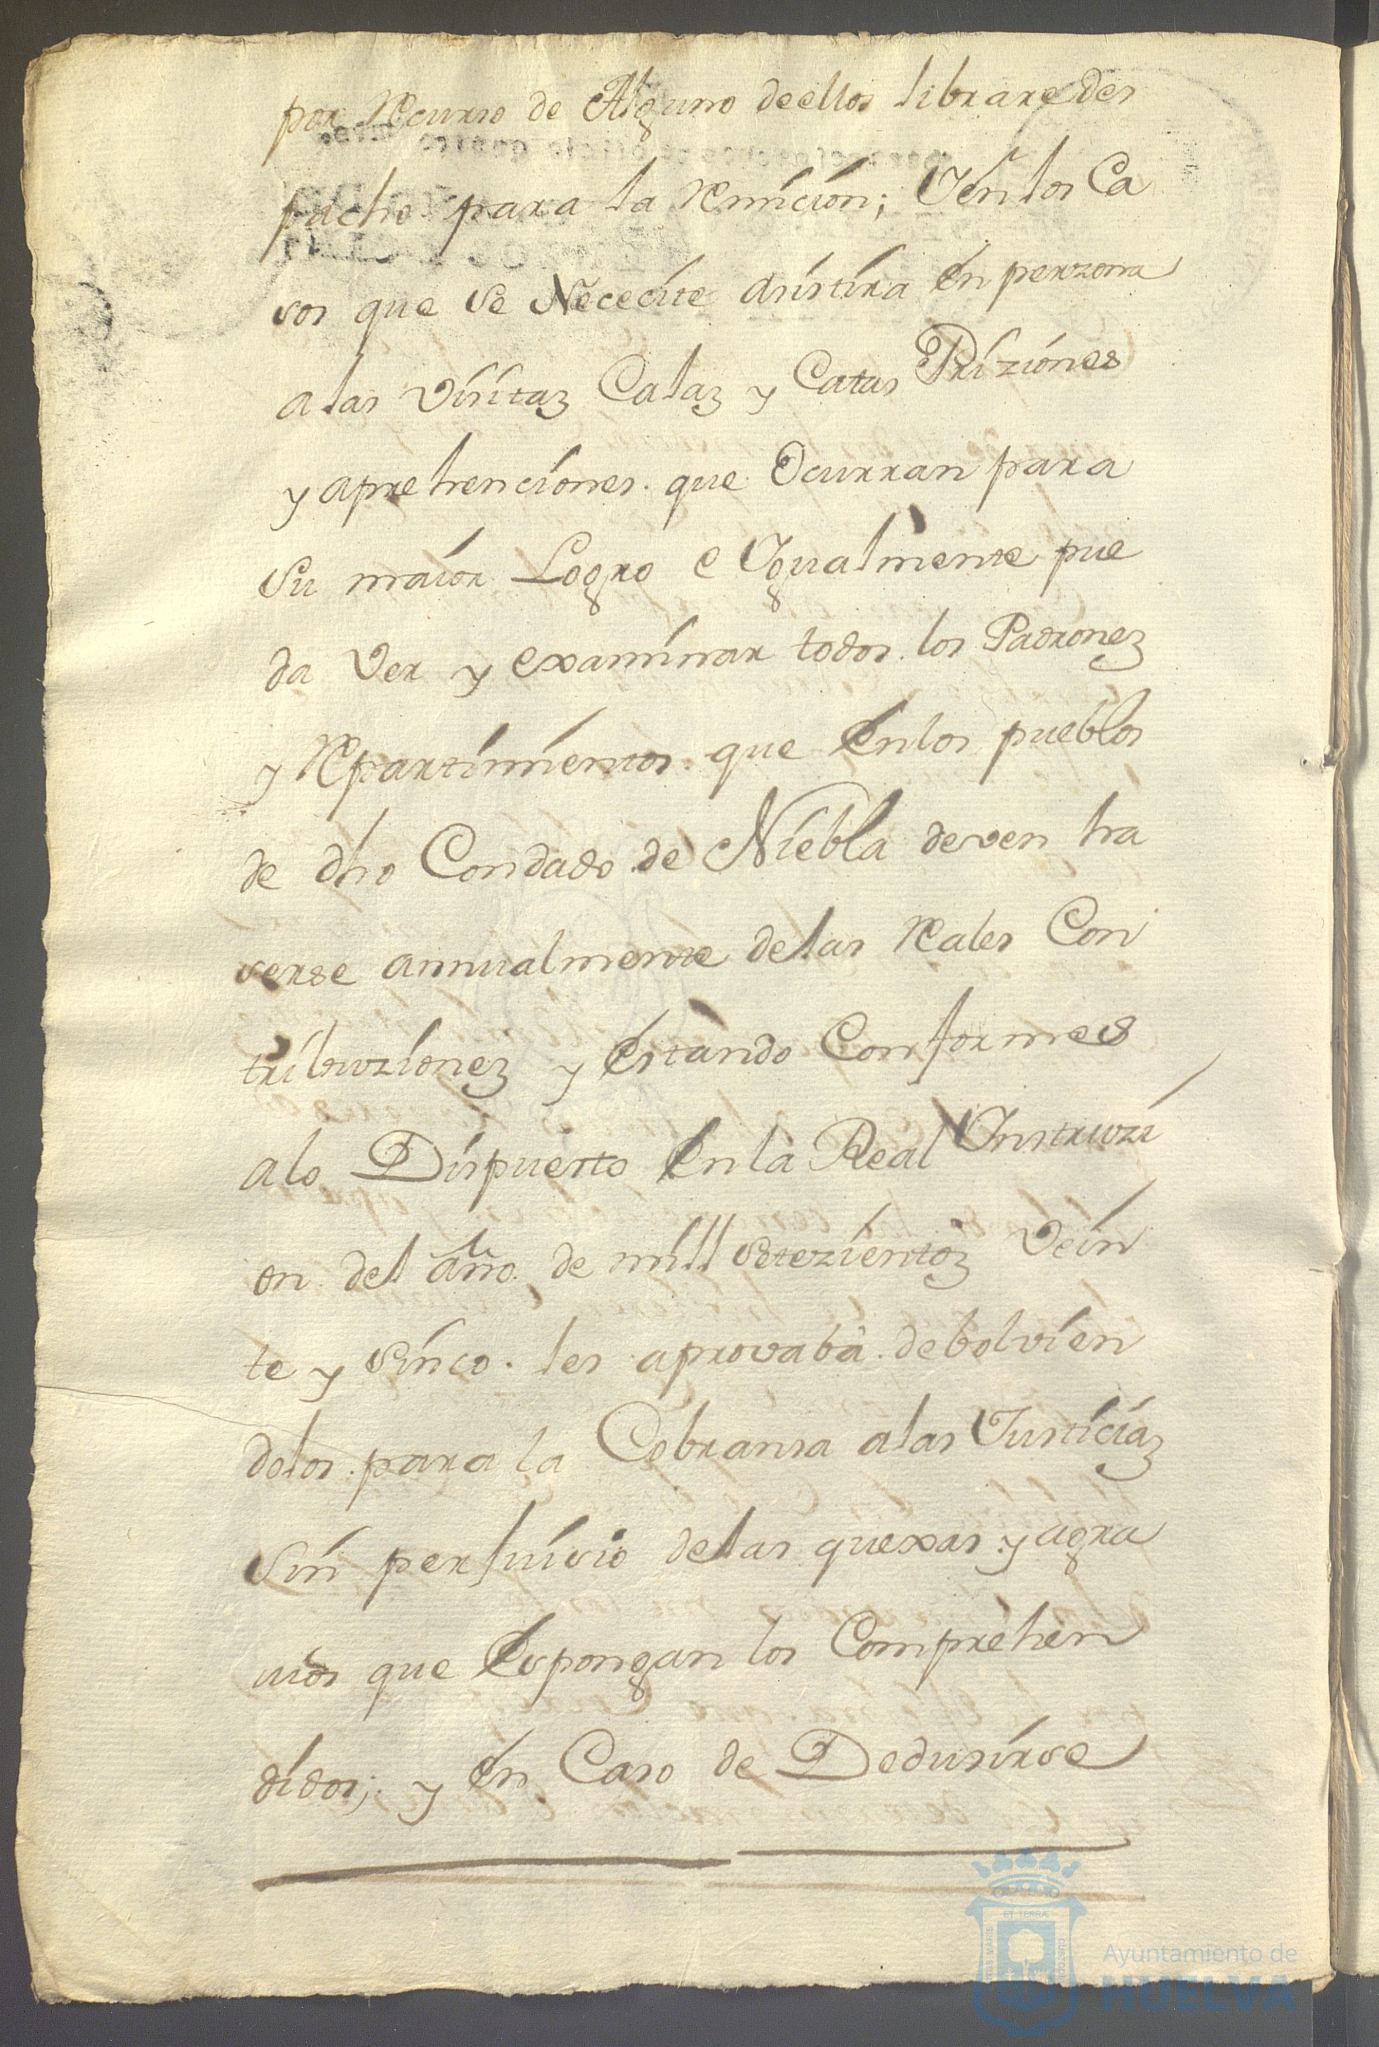 por Recurso de Alguno deellos librare des
pacho para la Remicion; Yen los Ca
sos que se Nececite asistira en perzona
a las Visitaz Calaz y Catas Priziones
y aprehenciones que Ocurran para
su maior Logro e Ygualmente pue
da Ver y examinar todos los Padronez
y Repartimientos que en los pueblos
de dho Condado de Niebla deven ha
serse annualmente delas Reales Con
tribuzionez y estando Conformes
alo Dispuesto en la Real Ynstruzi
on del año de mill setezientoz Vein
te y sinco les aprovaba debolvien
dolos para la Cobransa alas Justiciaz
sin perjuisio delas quexas y agra
vios que Espongan los Comprehen
didos; y en Caso de Dedusirse
Ayuntamiento de
HUELVA